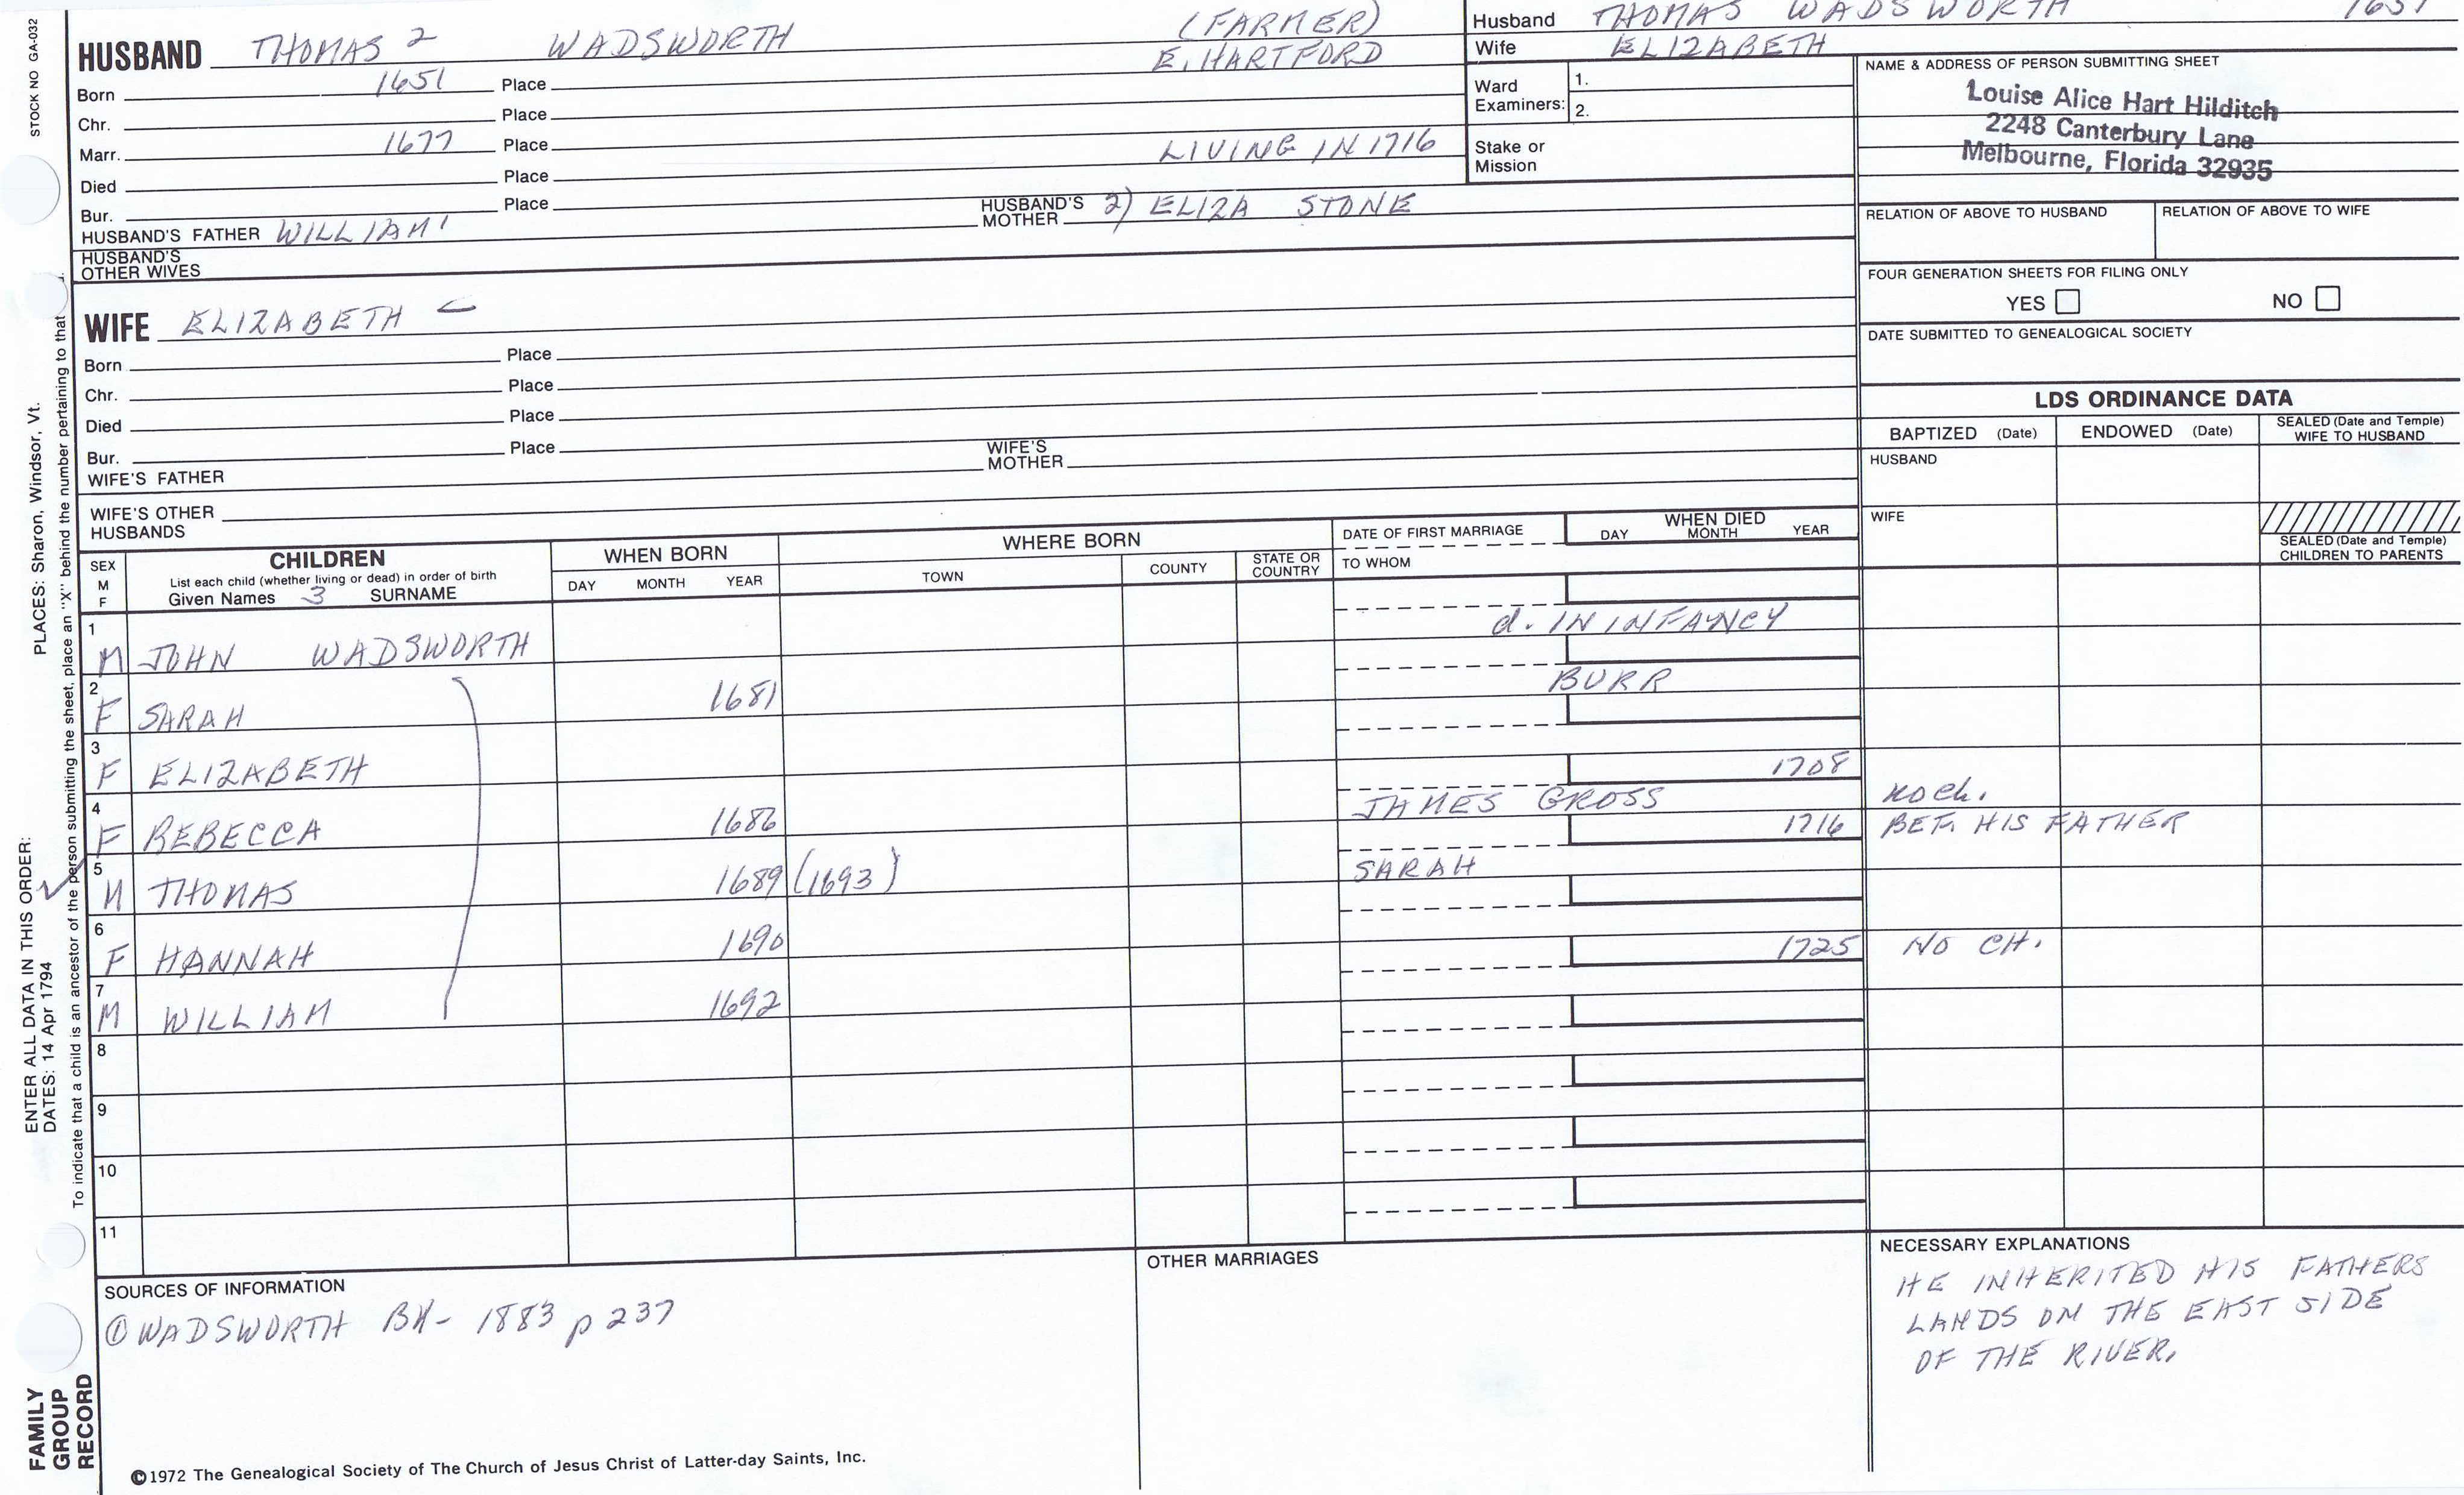 STOCK NO GA-032
HUSBAND THOMAS 2 WADSWORTH (FARMER)
Born 1651 Place E. HARTFORD
Chr. Place
Marr. 1677 Place
Died Place LIVING IN 1716
Bur. Place
HUSBAND'S FATHER WILLIAM 1 HUSBAND'S MOTHER 2) ELIZA STONE
HUSBAND'S OTHER WIVES
WIFE ELIZABETH —
Born Place
Chr. Place
Died Place
Bur. Place
WIFE'S FATHER WIFE'S MOTHER
WIFE'S OTHER HUSBANDS
Husband THOMAS WADSWORTH 1651
Wife ELIZABETH
Ward Examiners: 1.
2.
Stake or Mission
NAME & ADDRESS OF PERSON SUBMITTING SHEET
Louise Alice Hart Hilditch
2248 Canterbury Lane
Melbourne, Florida 32935
RELATION OF ABOVE TO HUSBAND RELATION OF ABOVE TO WIFE
FOUR GENERATION SHEETS FOR FILING ONLY
YES NO
DATE SUBMITTED TO GENEALOGICAL SOCIETY
LDS ORDINANCE DATA
BAPTIZED (Date) ENDOWED (Date) SEALED (Date and Temple) WIFE TO HUSBAND
HUSBAND
WIFE
SEALED (Date and Temple) CHILDREN TO PARENTS
SEX M F CHILDREN
List each child (whether living or dead) in order of birth
Given Names 3 SURNAME
WHEN BORN DAY MONTH YEAR
WHERE BORN TOWN COUNTY STATE OR COUNTRY
DATE OF FIRST MARRIAGE
TO WHOM
WHEN DIED DAY MONTH YEAR
1 M JOHN WADSWORTH d. IN INFANCY
2 F SARAH 1681 BURR
3 F ELIZABETH
4 F REBECCA 1686 JAMES GROSS 1708 no ch.
5 M THOMAS 1689 (1693) SARAH 1716 BEF. HIS FATHER
6 F HANNAH 1690
7 M WILLIAM 1692 1725 NO CH.
8
9
10
11
SOURCES OF INFORMATION
① WADSWORTH BK- 1883 p 237
OTHER MARRIAGES
NECESSARY EXPLANATIONS
HE INHERITED HIS FATHERS
LANDS ON THE EAST SIDE
OF THE RIVER.
©1972 The Genealogical Society of The Church of Jesus Christ of Latter-day Saints, Inc.
FAMILY
GROUP
RECORD
ENTER ALL DATA IN THIS ORDER:
DATES: 14 Apr 1794 PLACES: Sharon, Windsor, Vt.
To indicate that a child is an ancestor of the person submitting the sheet, place an "X" behind the number pertaining to that